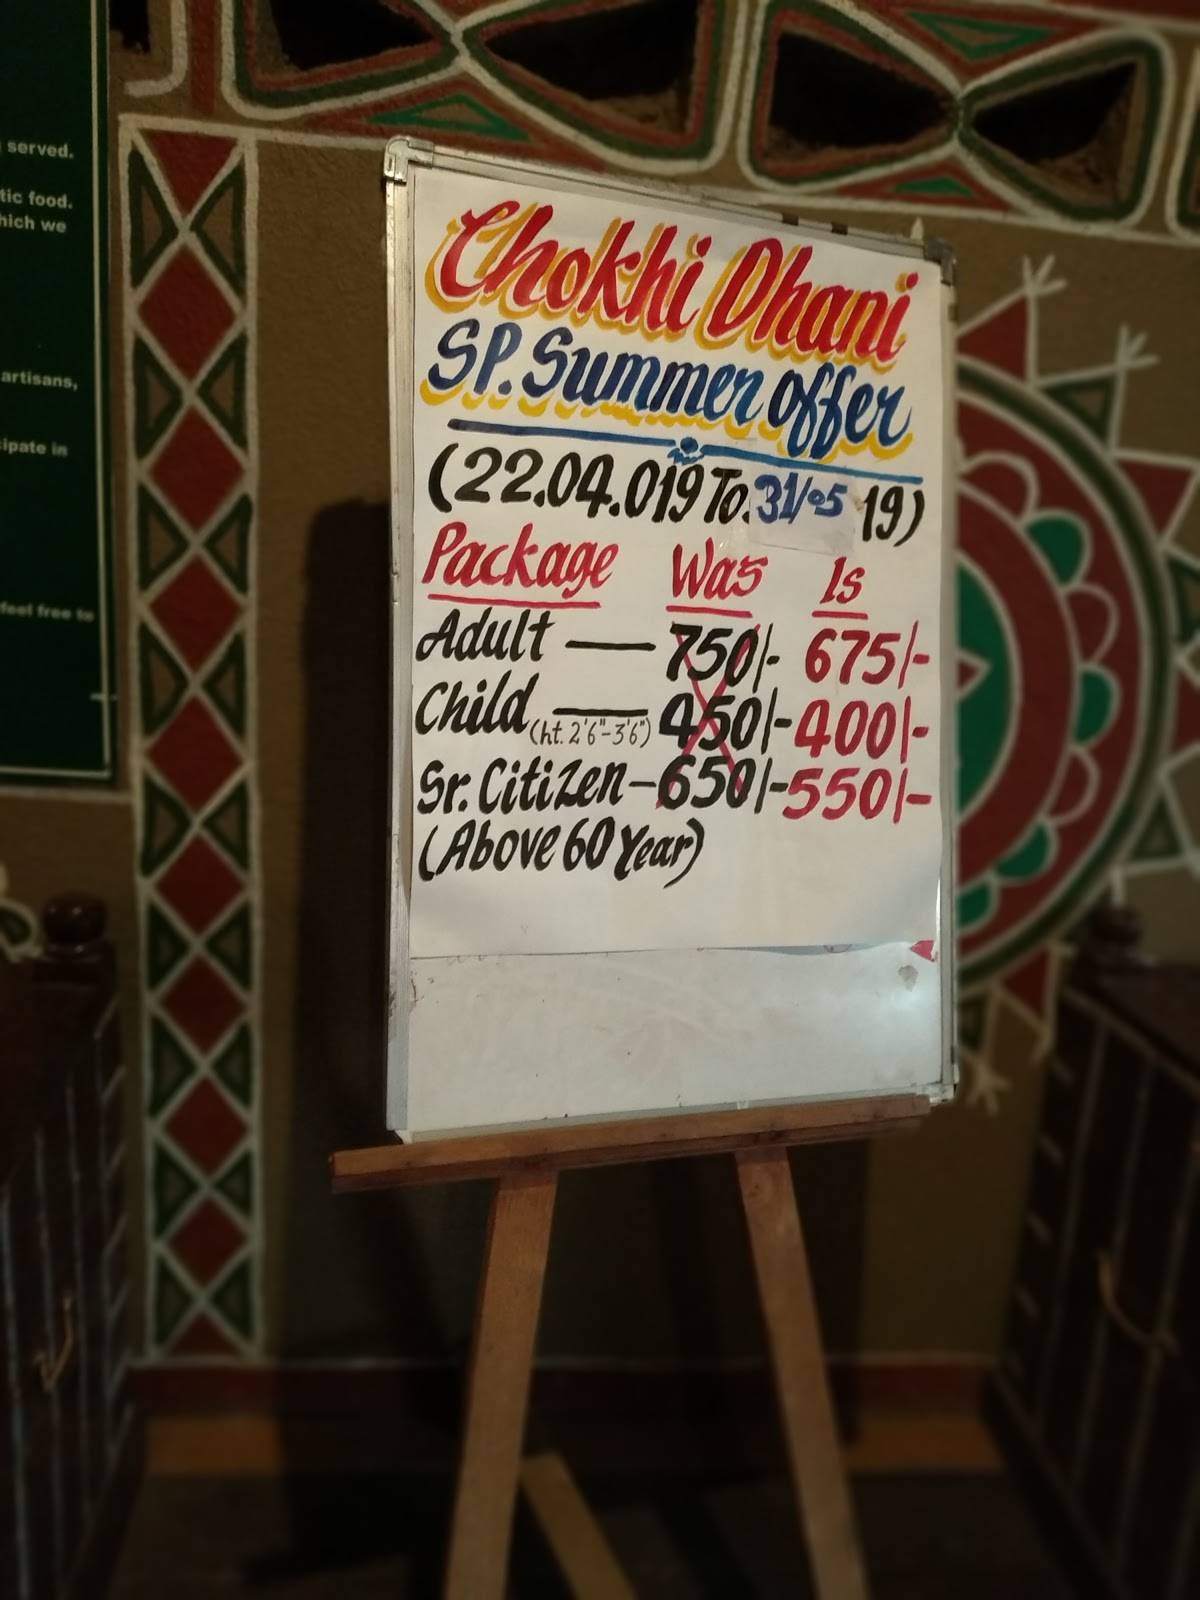 served.
tic food.
hich we
artisans,
cipate in
feel free to
Chokhi Dhani
SP. Summer offer
(22.04.019 To. 31/05 19)
Package Was Is
Adult — 750/- 675/-
Child (ht. 2'6"-3'6") — 450/- 400/-
Sr. Citizen - 650/- 550/-
(Above 60 Year)